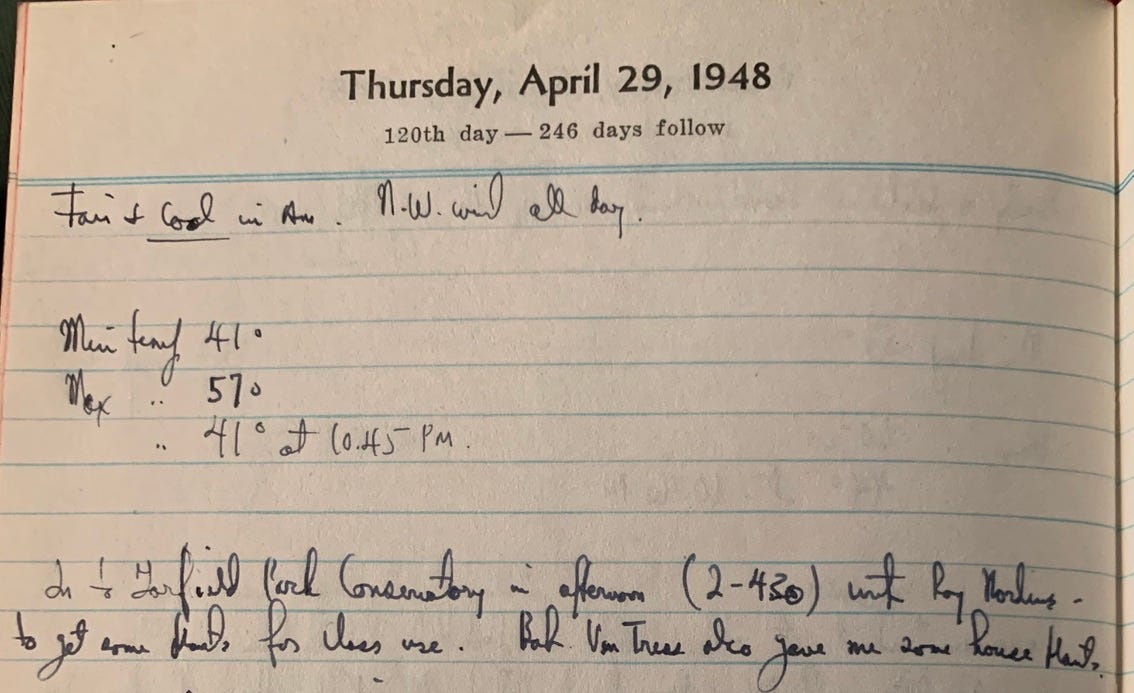 Thursday, April 29, 1948
120th day — 246 days follow
Fair & Cool in Am. N.W. wind all day.
Min temp 41°
Max " 57°
" 41° at 10.45 PM.
Garfield Park Conservatory in afternoon (2-430) with Roy
to get some plants for class use. Bob Van Tress also gave me some house plants.